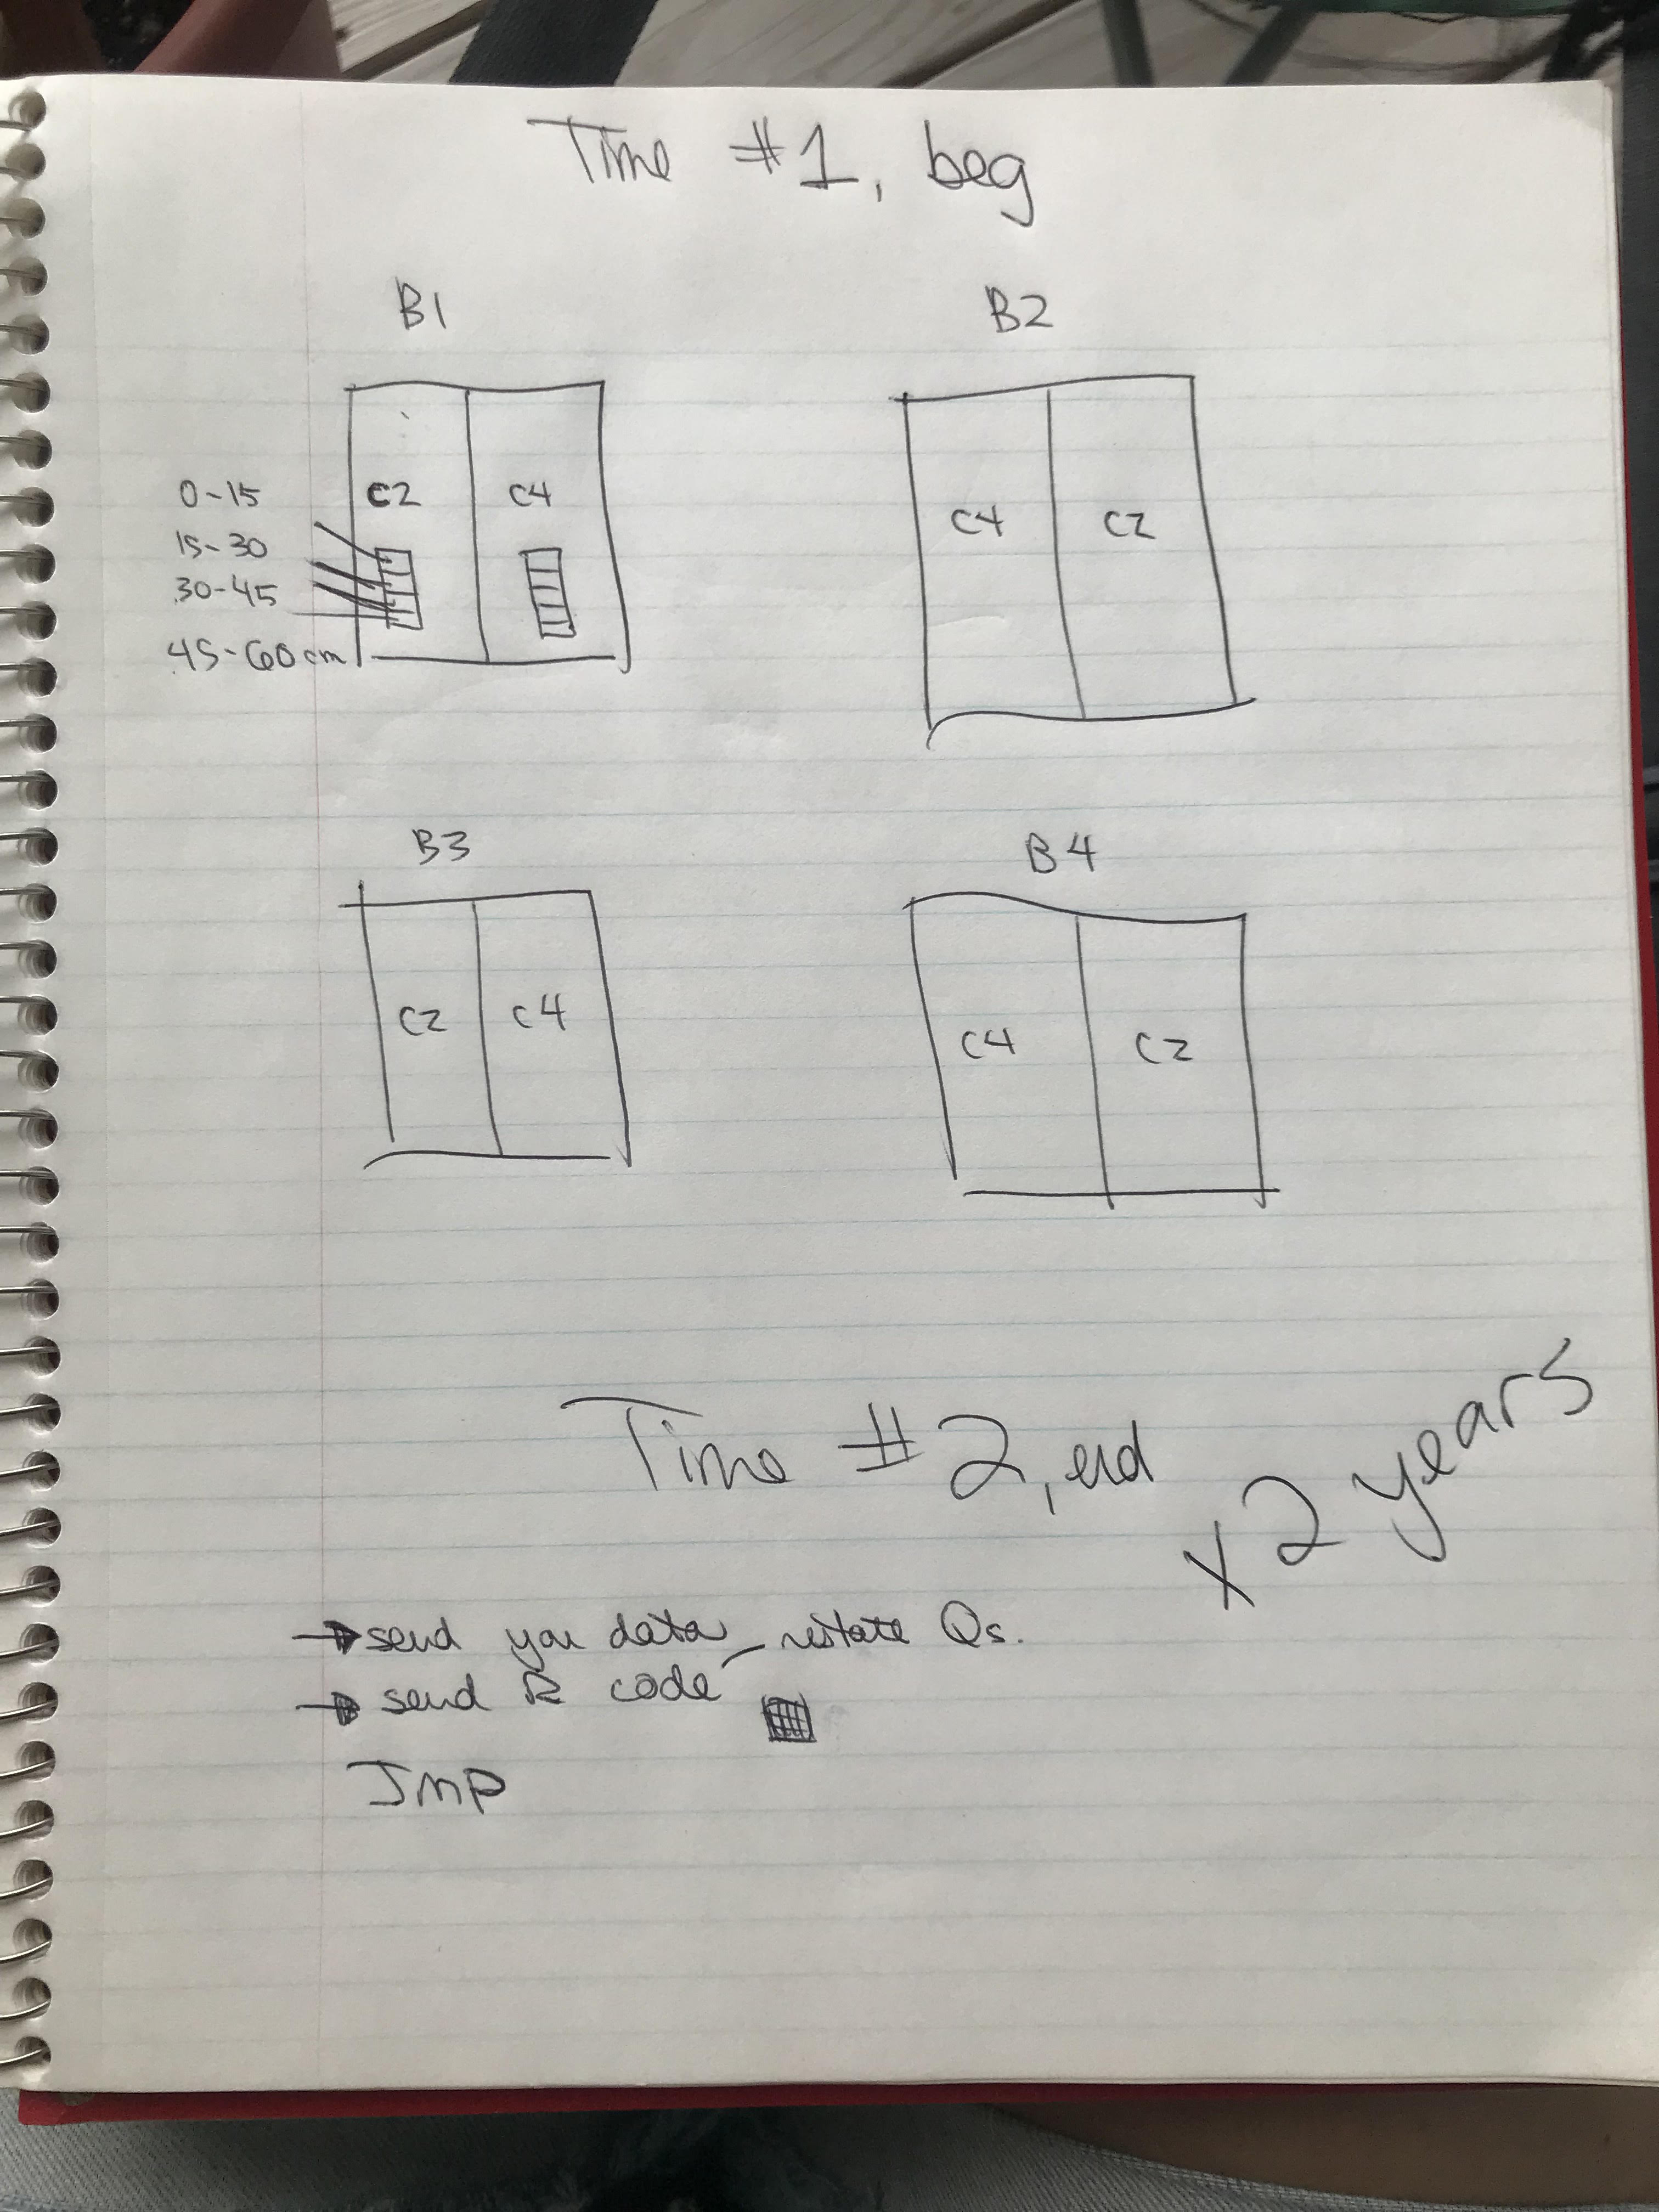 Time #1, beg
B1
B2
0-15
15-30
30-45
45-60cm
C2 C4
C4 C2
B3
B4
C2 C4
C4 C2
Time #2, end
x2 years
→ send you data restate Qs.
→ send R code
Jmp